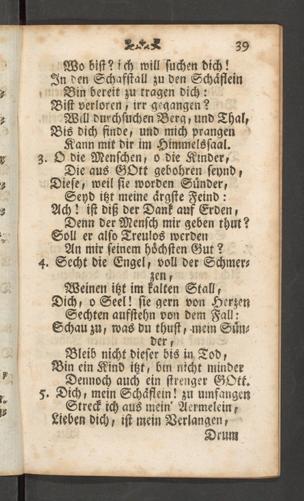 39
Wo bist? ich will suchen dich!
In den Schafstall zu den Schäflein
Bin bereit zu tragen dich:
Bist verloren, irr gegangen?
Will durchsuchen Berg, und Thal,
Bis dich finde, und mich prangen
Kann mit dir im Himmelssaal.
3. O die Menschen, o die Kinder,
Die aus GOtt gebohren seynd,
Diese, weil sie worden Sünder,
Seyd itzt meine ärgste Feind:
Ach! ist diß der Dank auf Erden,
Denn der Mensch mir geben thut?
Soll er also Treulos werden
An mir seinem höchsten Gut?
4. Secht die Engel, voll der Schmer-
zen,
Weinen itzt im kalten Stall,
Dich, o Seel! sie gern von Herzen
Sechten aufstehn von dem Fall:
Schau zu, was du thust, mein Sün-
der,
Bleib nicht dieser bis in Tod,
Bin ein Kind itzt, bin nicht minder
Dennoch auch ein strenger GOtt.
5. Dich, mein Schäflein! zu umfangen
Streck ich aus mein' Aermelein,
Lieben dich, ist mein Verlangen,
Drum